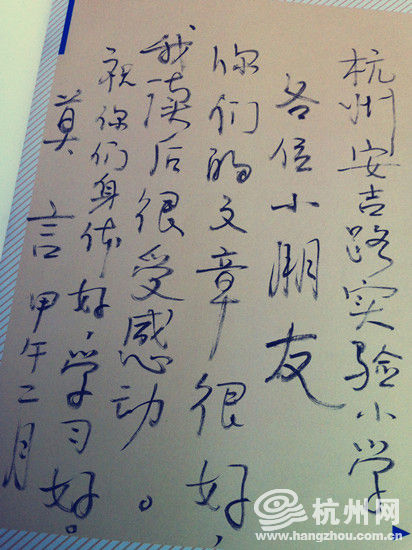 杭州安吉路实验小学
各位小朋友
你们的文章很好，
我读后很受感动。
祝你们身体好，学习好。
莫言 甲午二月
杭州网
www.hangzhou.com.cn